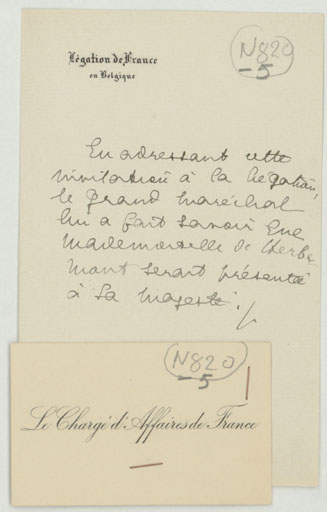 Légation de France
en Belgique
N820
-5
En adressant cette
invitation à la Légation,
le grand maréchal
lui a fait savoir que
Mademoiselle de Cherbe-
mont serait présentée
à Sa Majesté ./
N820
-5
Le Chargé d'Affaires de France